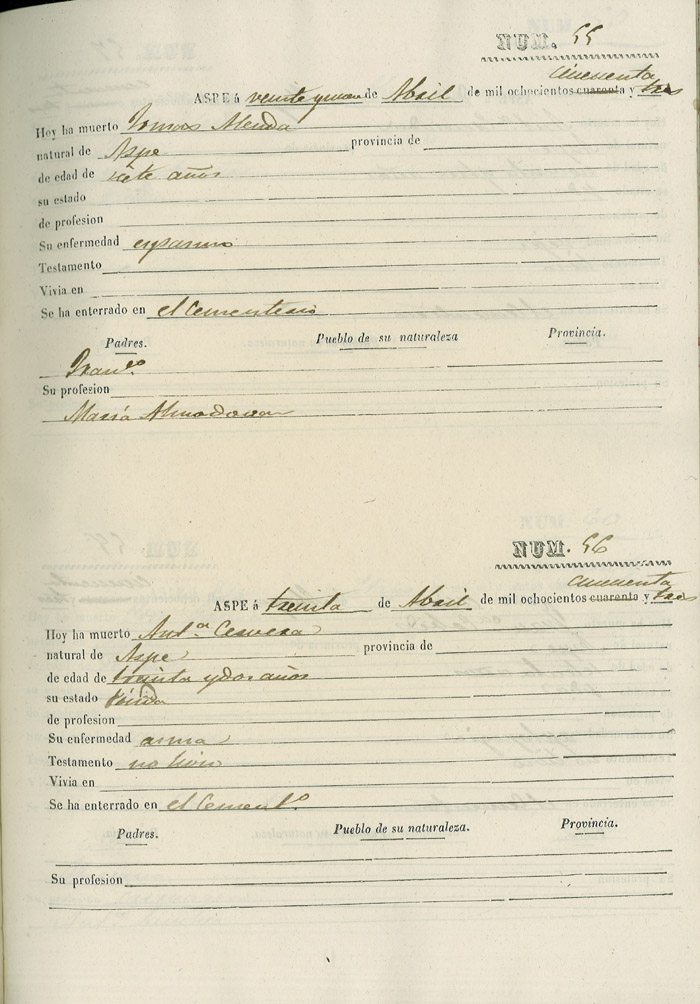 NUM. 55
cincuenta
ASPE á veinte y nueve de Abril de mil ochocientos cuarenta y tres
Hoy ha muerto Tomas Alenda
natural de Aspe provincia de
de edad de siete años
su estado
de profesion
Su enfermedad espasmo
Testamento
Vivia en
Se ha enterrado en el Cementerio
Padres. Pueblo de su naturaleza Provincia.
Fran.co
Su profesion
Maria Almodovar
NUM. 56
cincuenta
ASPE á treinta de Abril de mil ochocientos cuarenta y tres
Hoy ha muerto Ant.a Cervera
natural de Aspe provincia de
de edad de treinta y dos años
su estado
de profesion
Su enfermedad asma
Testamento no hizo
Vivia en
Se ha enterrado en el Cement.o
Padres. Pueblo de su naturaleza. Provincia.
Su profesion